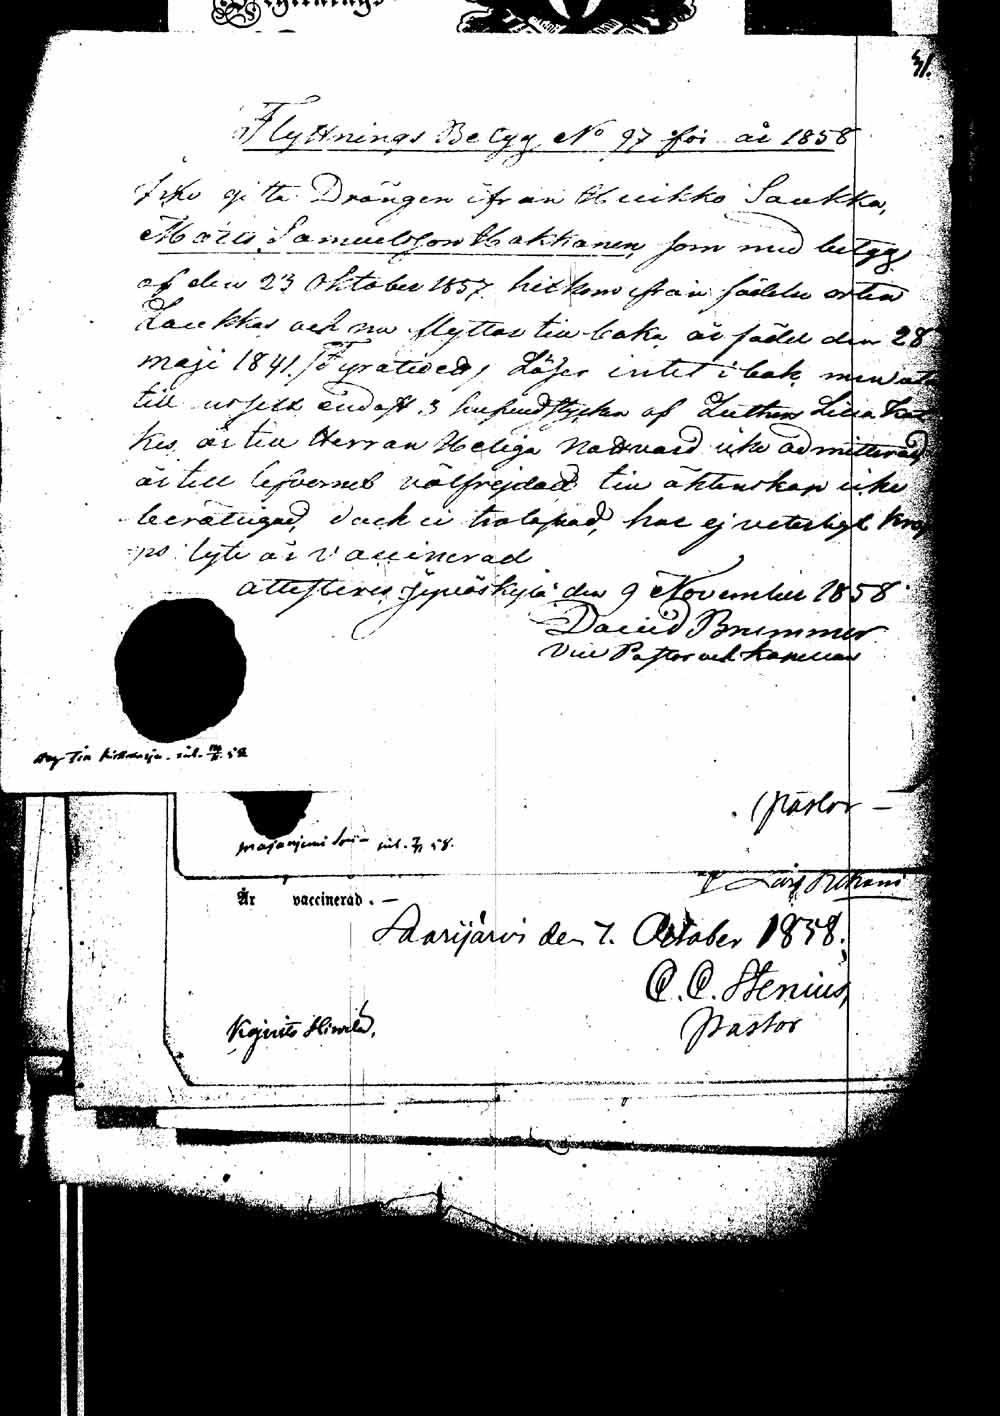 41.
Flyttnings Betyg No 97 för år 1858
Icke gifta Drängen ifrån Huikko Saukka,
Matts Samuelsson Hakkanen, som med betyg
af den 23 Oktober 1857 hitkom ifrån födelse orten
Laukkas och nu flyttar tillbaka är född den 28
maji 1841. /Fyratioett/ Läser intet i bok, men
till endast 3 hufvudstycken af Luthers Lilla
kes, är till Herrans Heliga Nattvard icke admitterad,
är till lefvernet välfrejdad till äktenskap icke
berättigad, dock ei trolofvad, har ej veterligt krop
ps lyte är vaccinerad
attesteras Jyväskylä den 9 November 1858
David Brummer
Vice Pastor och Kapellan
pastor —
Är vaccinerad. —
Saarijärvi den 7. October 1858.
C. C. Stenius,
pastor